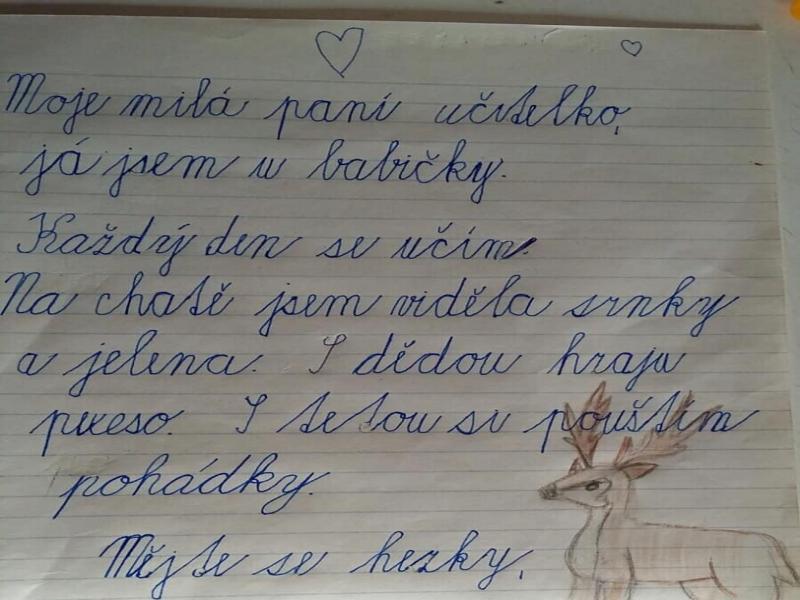 Moje milá paní učitelko,
já jsem u babičky.
Každý den se učím.
Na chatě jsem viděla srnky
a jelena. S dědou hraju
pexeso. S tetou si pouštím
pohádky.
Mějte se hezky,